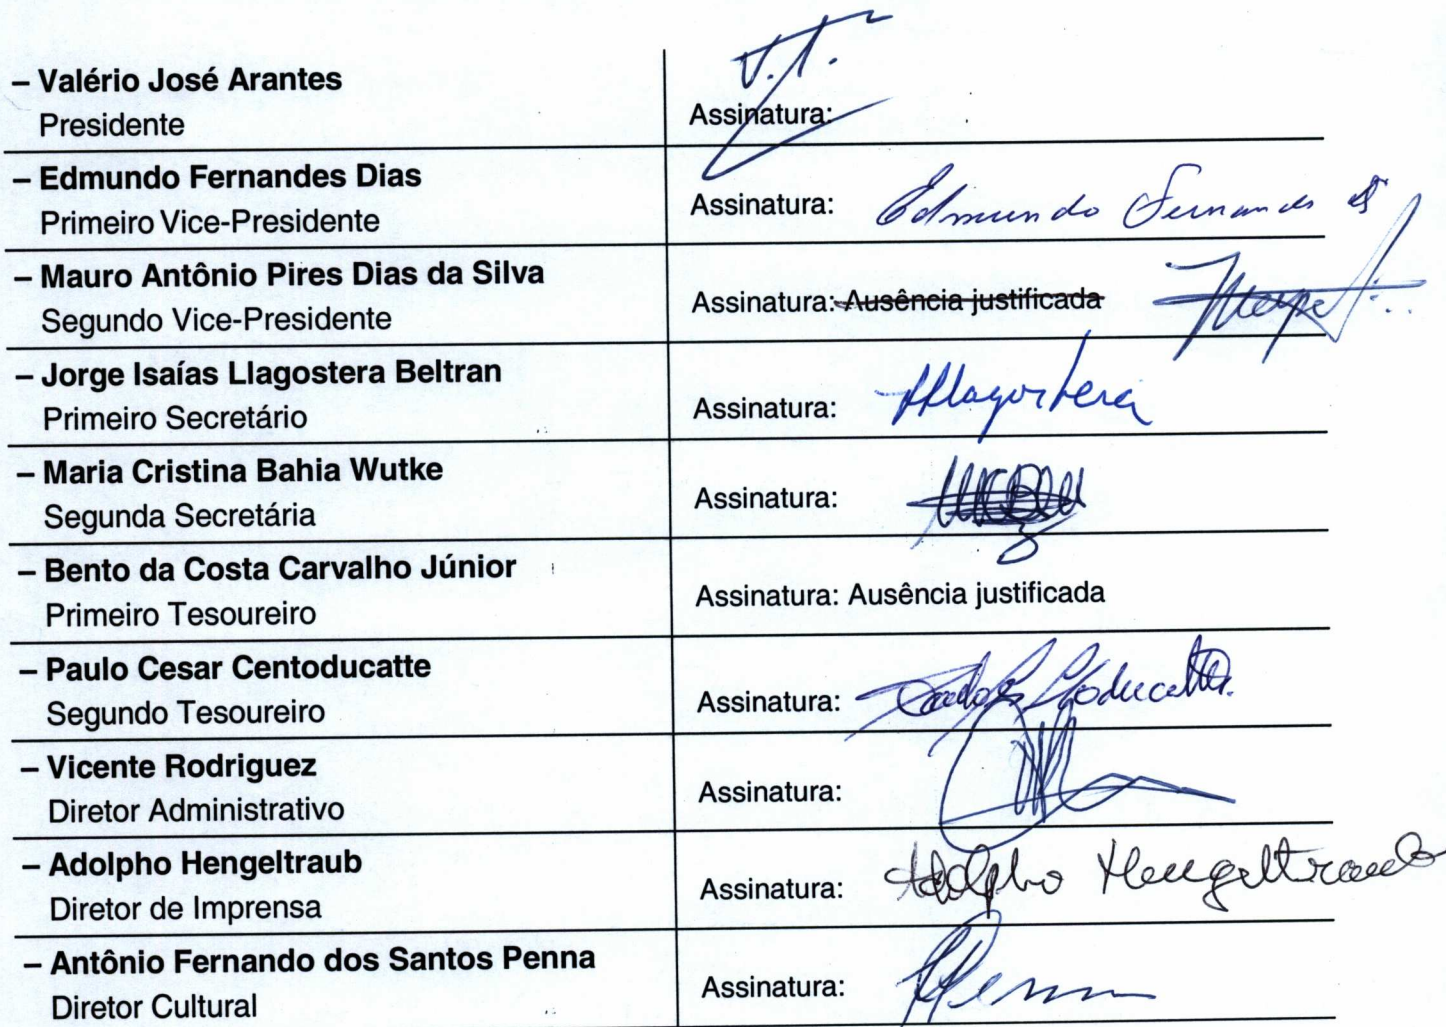 – Valério José Arantes
Presidente
Assinatura: V.J.
– Edmundo Fernandes Dias
Primeiro Vice-Presidente
Assinatura: Edmundo Fernandes
– Mauro Antônio Pires Dias da Silva
Segundo Vice-Presidente
Assinatura: Ausência justificada
– Jorge Isaías Llagostera Beltran
Primeiro Secretário
Assinatura: Llagostera
– Maria Cristina Bahia Wutke
Segunda Secretária
Assinatura:
– Bento da Costa Carvalho Júnior
Primeiro Tesoureiro
Assinatura: Ausência justificada
– Paulo Cesar Centoducatte
Segundo Tesoureiro
Assinatura:
– Vicente Rodriguez
Diretor Administrativo
Assinatura:
– Adolpho Hengeltraub
Diretor de Imprensa
Assinatura: Adolpho Hengeltraub
– Antônio Fernando dos Santos Penna
Diretor Cultural
Assinatura: